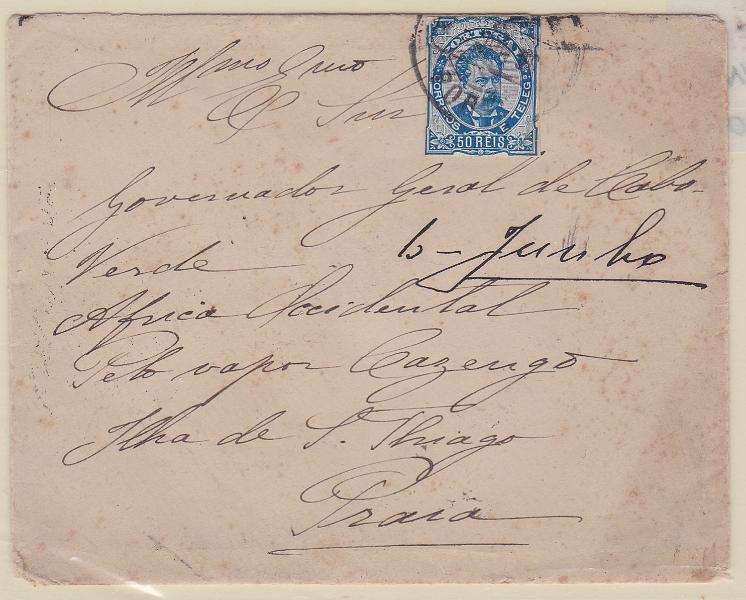 PORTUGAL
CORREIOS E TELEG
50 REIS
Illmo Exmo
Snr
Governador Geral de Cabo-
Verde
6 - Junho
Africa Occidental
Pelo vapor Cazengo
Ilha de S. Thiago
Praia